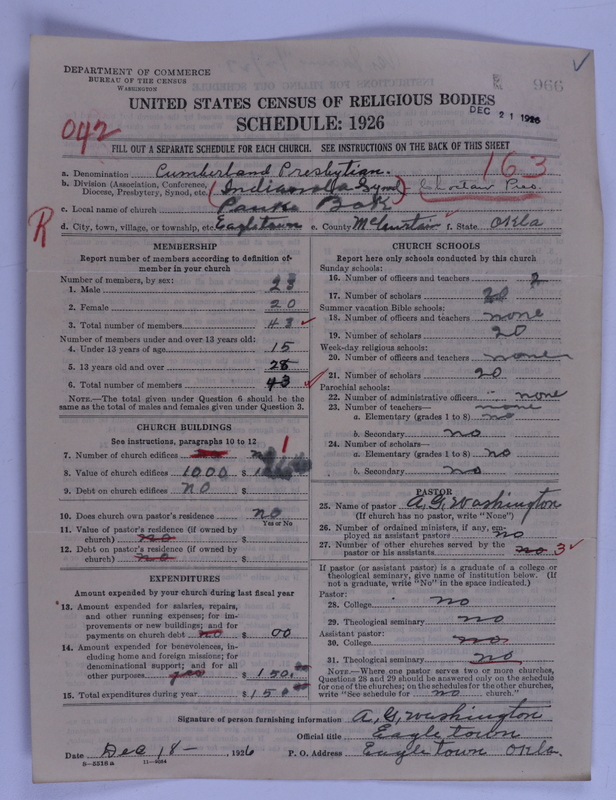 DEPARTMENT OF COMMERCE
BUREAU OF THE CENSUS
WASHINGTON
966
UNITED STATES CENSUS OF RELIGIOUS BODIES
DEC 21 1926
SCHEDULE: 1926
042
FILL OUT A SEPARATE SCHEDULE FOR EACH CHURCH. SEE INSTRUCTIONS ON THE BACK OF THIS SHEET
163
a. Denomination Cumberland Presbytian.
b. Division (Association, Conference, Diocese, Presbytery, Synod, etc.) (Indianola Synod) Choctaw Pres.
c. Local name of church Bok
R
d. City, town, village, or township, etc. Eagletown e. County McCurtain f. State Okla
MEMBERSHIP
Report number of members according to definition of member in your church
Number of members, by sex:
1. Male 23
2. Female 20
3. Total number of members 43 ✓
Number of members under and over 13 years old:
4. Under 13 years of age 15
5. 13 years old and over 28
6. Total number of members 43 ✓
NOTE.—The total given under Question 6 should be the
same as the total of males and females given under Question 3.
CHURCH BUILDINGS
See instructions, paragraphs 10 to 12
7. Number of church edifices 1
8. Value of church edifices 1000 $
9. Debt on church edifices no $
10. Does church own pastor's residence no
Yes or No
11. Value of pastor's residence (if owned by
church) no $
12. Debt on pastor's residence (if owned by
church) no $
EXPENDITURES
Amount expended by your church during last fiscal year
13. Amount expended for salaries, repairs,
and other running expenses; for im-
provements or new buildings; and for
payments on church debt no $ 00
14. Amount expended for benevolences, in-
cluding home and foreign missions; for
denominational support; and for all
other purposes $ 150.00
15. Total expenditures during year $ 150.00
CHURCH SCHOOLS
Report here only schools conducted by this church
Sunday schools:
16. Number of officers and teachers 2
17. Number of scholars 20
Summer vacation Bible schools:
18. Number of officers and teachers none
19. Number of scholars 20
Week-day religious schools:
20. Number of officers and teachers none
21. Number of scholars 20
Parochial schools:
22. Number of administrative officers none
23. Number of teachers— none
a. Elementary (grades 1 to 8) no
b. Secondary no
24. Number of scholars—
a. Elementary (grades 1 to 8) no
b. Secondary no
PASTOR
25. Name of pastor A. G. Washington
(If church has no pastor, write "None")
26. Number of ordained ministers, if any, em-
ployed as assistant pastors no
27. Number of other churches served by the
pastor or his assistants no 3 ✓
If pastor (or assistant pastor) is a graduate of a college or
theological seminary, give name of institution below. (If
not a graduate, write "No" in the space indicated.)
Pastor:
28. College no
29. Theological seminary no
Assistant pastor:
30. College no
31. Theological seminary no
NOTE.—Where one pastor serves two or more churches,
Questions 28 and 29 should be answered only on the schedule
for one of the churches; on the schedules for the other churches,
write "See schedule for no church."
Signature of person furnishing information A. G. Washington
Official title Eagletown
Date Dec 18— , 1926 P. O. Address Eagletown Okla.
8—5518a 11—9084